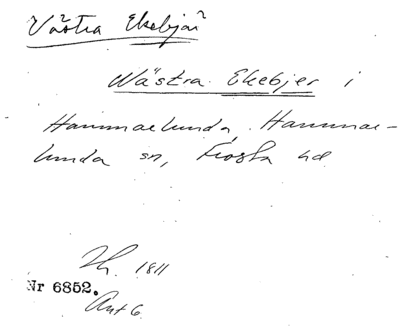 Västra Ekebjär
Wästra Ekebjer i
Hammarlunda, Hammar-
lunda sn, Frosta hd
Th. 1811
Nr 6852.
Ant 6